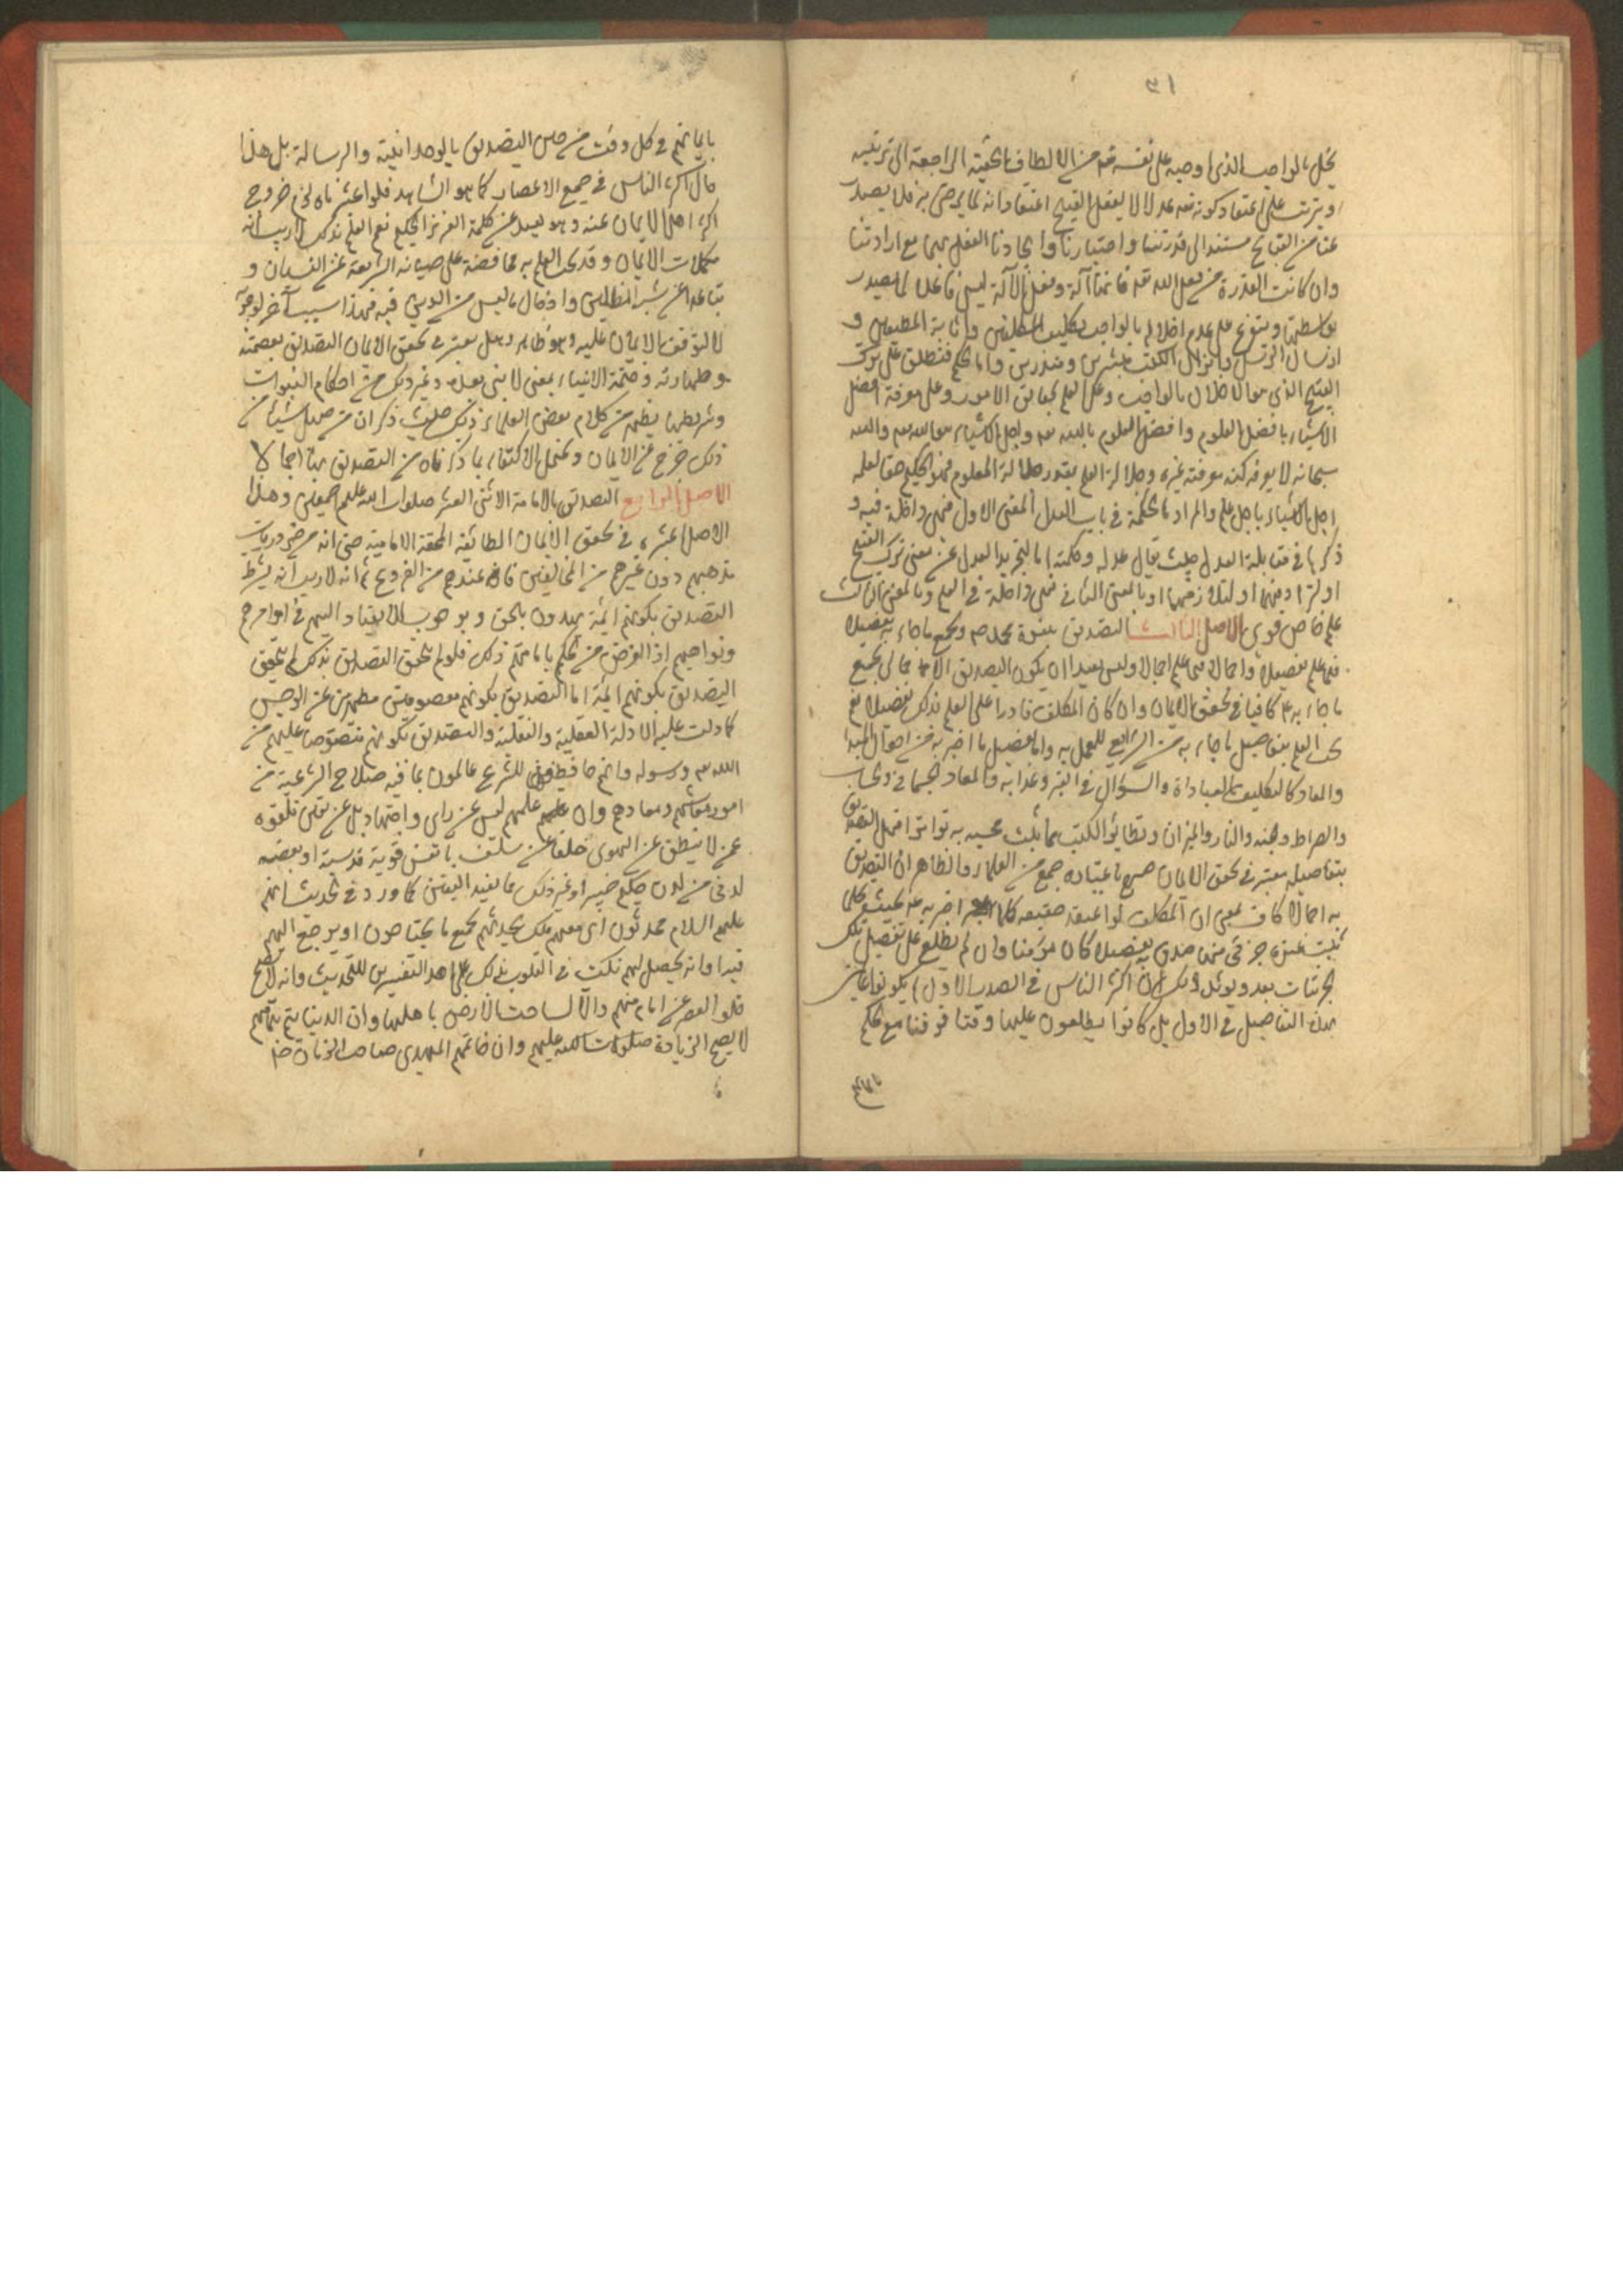 ٣١
يخل بالواجب الذي اوجبه على نفسه تعه من الالطاف الراجعة الى تربيته
ويترتب على اعتقاد كونه تعه عدلا لا يفعل القبيح اعتقاد انه لا يرضى به فلا يصدر
عنا من القبائح مستندا الى قدرتنا واختيارنا وايجادنا الفعل بهما مع ارادتنا
وان كانت القدرة من فعل الله تعه فانها آلة وفعل الآلة ليس فاعلا لما يصدر
بواسطتها ويتفرع على عدم اخلاله بالواجب تكليف المكلفين واثابة المطيعين و
ارسال الرسل وانزال الكتب مبشرين ومنذرين واما الحكم فتطلق على ترك
القبيح الذي هو الاخلال بالواجب وعلى العلم بحقائق الامور وعلى معرفة افضل
الاشياء بافضل العلوم وافضل العلوم بالله تعه واجل الاشياء هو الله تعه والله
سبحانه لا يعرفه كنه معرفته غيره وجلالة العلم بقدر جلالة المعلوم فهو الحكيم حقا لعلمه
اجل الاشياء باجل علم والمراد بالحكمة في باب العدل المعنى الاول فهي داخلة فيه و
ذكرها في مقابلة العدل حيث يقال عدله وحكمته اما لتجريد العدل عن معنى ترك القبيح
او لترادفهما او لتلازمهما او بالمعنى الثاني فهي داخلة في العلم وبالمعنى الثالث
علم خاص قوي الاصل الثالث التصديق بنبوة محمد ص وبجميع ما جاء به تفصيلا
فيما علم تفصيلا واجمالا فيما علم اجمالا وليس بعيدا ان يكون التصديق الاجمالي بجميع
ما جاء به ع كافيا في تحقق الايمان وان كان المكلف قادرا على العلم بذلك تفصيلا نعم
يجب العلم بتفاصيل ما جاء به من الشرايع للعمل به واما تفصيل ما اخبر به من احوال المبدأ
والمعاد كالتكليف بالعبادات والسؤال في القبر وعذابه والمعاد الجسماني والحساب
والصراط والجنة والنار والميزان وتطائر الكتب مما ثبت مجيئه به تواترا فهل التصديق
بتفاصيله معتبر في تحقق الايمان صرح باعتباره جمع من العلماء والظاهر ان التصديق
به اجمالا كاف بمعنى ان المكلف لو اعتقد حقيقة كلما اخبر به ع بحيث كلما
ثبت عنده جزئي منها صدق به تفصيلا كان مؤمنا وان لم يطلع على تفصيل تلك
الجزئيات بعد ويؤيد ذلك ان اكثر الناس في الصدر الاول لم يكونوا عالمين
بهذه التفاصيل في الاول بل كانوا يطلعون عليها وقتا فوقتا مع الحكم
بايمانهم
بايمانهم في كل وقت من حين التصديق بالوحدانية والرسالة بل هذا
حال اكثر الناس في جميع الاعصار كما هو المشاهد فلو اعتبرناه لزم خروج
اكثر اهل الايمان عنه وهو بعيد عن حكمة العزيز الحكيم نعم العلم بذلك لا ريب انه
من مكملات الايمان وقد يجب العلم به محافظة على صيانة الشريعة عن النسيان و
تباعدا عن شبه المضلين وادخال ما ليس من الدين فيه فهذا سبب آخر لوجوبه
لا لتوقف الايمان عليه وهو ظاهر وهل يعتبر في تحقق الايمان التصديق بعصمته
وطهارته وختمه الانبياء بمعنى لا نبي بعده وغير ذلك من احكام النبوات
وشرائطها يظهر من كلام بعض العلماء ذلك حيث ذكر ان من جهل شيئا من
ذلك خرج عن الايمان ويحتمل الاكتفاء بما ذكرناه من التصديق بها اجمالا
الاصل الرابع التصديق بالامامة الاثنى العشر صلوات الله عليهم اجمعين وهذا
الاصل اعتبره في تحقق الايمان الطائفة المحقة الامامية حتى انه من ضروريات
مذهبهم دون غيرهم من المخالفين فانه عندهم من الفروع ثم انه لا ريب انه يشترط
التصديق بكونهم ائمة يهدون بالحق وبوجوب الانقياد اليهم في اوامرهم
ونواهيهم اذ الغرض من الحكم بامامتهم ذلك فلو لم يتحقق التصديق بذلك لم يتحقق
التصديق بكونهم ائمة اما التصديق بكونهم معصومين مطهرين عن الرجس
كما دلت عليه الادلة العقلية والنقلية والتصديق بكونهم منصوصا عليهم من
الله تعه ورسوله وانهم حافظون للشرع عالمون بما فيه صلاح الشرعية من
امور معاشهم ومعادهم وان علمهم ليس عن راي واجتهاد بل عن يقين تلقوه
عمن لا ينطق عن الهوى خلفا عن سلف بانفس قوية قدسية او بعضه
لدني من لدن حكيم خبير او غير ذلك مما يفيد اليقين كما ورد في الحديث انهم
عليهم السلام محدثون اى معهم ملك يحدثهم بجميع ما يحتاجون او يرجع اليهم
فيه او انه يحصل لهم نكت في القلوب بذلك على احد التفسيرين للحديث وانه لا يصح
خلو العصر عن امام منهم والا لساخت الارض باهلها وان الدنيا تتم بتمامهم
لا يصح الزيادة صلوات الله عليهم وان خاتمهم المهدي صاحب الزمان